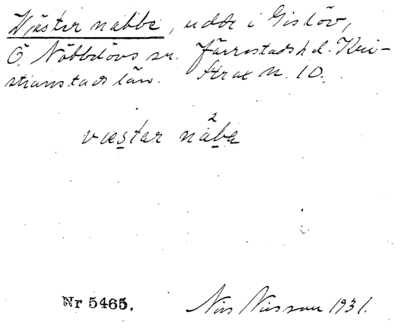 Wäster nabbe, udde i Gislöv,
Ö. Nöbbelövs sn. Järrestads hd. Kri-
stianstads län. Strax n. 10.
2
væstar nåbe
Nr 5465.
Nils Nilsson 1931.